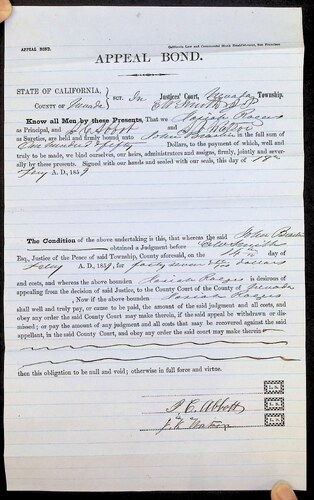 APPEAL BOND.
California Law and Commercial Blank Establishment, San Francisco
APPEAL BOND.
STATE OF CALIFORNIA, } SCT. In Justices' Court, Township.
COUNTY OF Nevada
Know all Men by these Presents, That we
as Principal, and and
as Sureties, are held and firmly bound unto John in the full sum of
One hundred & fifty Dollars, to the payment of which, well and
truly to be made, we bind ourselves, our heirs, administrators and assigns, firmly, jointly and sever-
ally by these presents. Signed with our hands and sealed with our seals, this day of
A. D., 1859
The Condition of the above undertaking is this, that whereas the said John
obtained a Judgment before
Esq., Justice of the Peace of said Township, County aforesaid, on the day of
A. D., 1859, for forty seven dollars
and costs, and whereas the above bounden is desirous of
appealing from the decision of said Justice, to the County Court of the County of Nevada
, Now if the above bounden
shall well and truly pay, or cause to be paid, the amount of said judgment and all costs, and
obey any order the said County Court may make therein, if the said appeal be withdrawn or dis-
missed; or pay the amount of any judgment and all costs that may be recovered against the said
appellant, in the said County Court, and obey any order the said court may make therein
then this obligation to be null and void; otherwise in full force and virtue.
L. S.
Abbott L. S.
J. K. L. S.